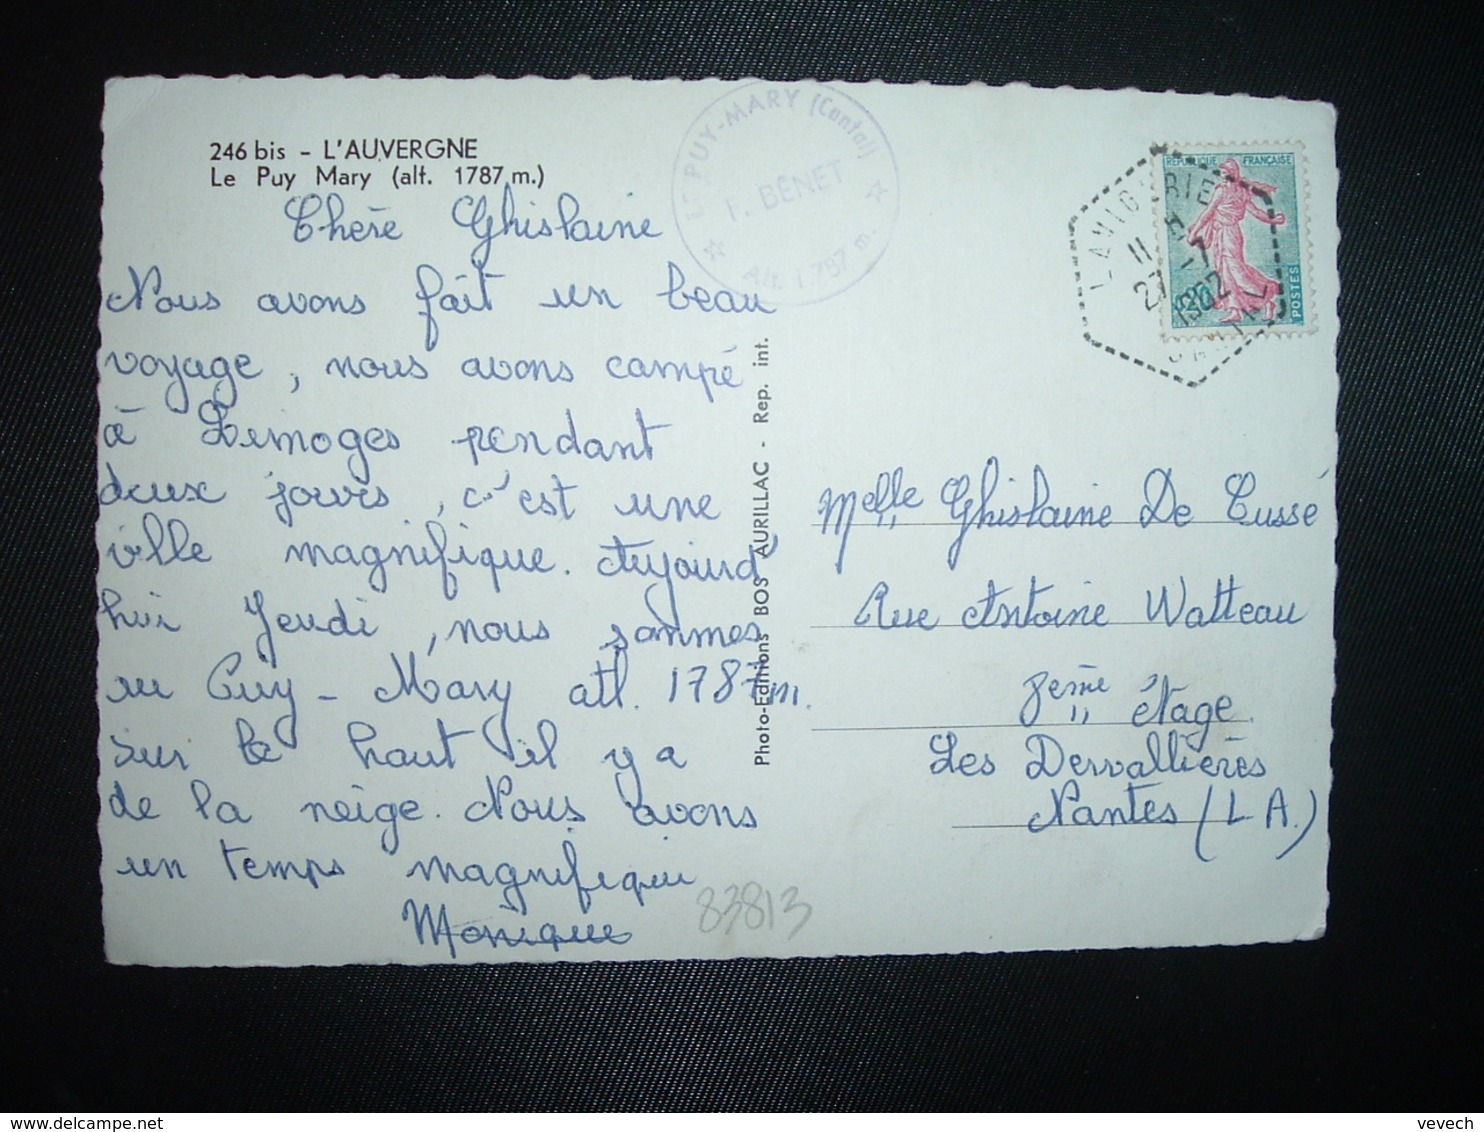 246 bis - L'AUVERGNE
Le Puy Mary (alt. 1787 m.)
LE PUY-MARY (Cantal)
BÉNET
Alt. 1.787 m.
REPUBLIQUE FRANÇAISE
POSTES
LAVIGERIE
11 H
27 -7
1962
CANTAL
Chère Ghislaine
Nous avons fait un beau
voyage, nous avons campé
à Limoges pendant
deux jours, c'est une
ville magnifique. Aujourd'
hui Jeudi, nous sommes
au Puy-Mary atl. 1787m.
sur le haut il y a
de la neige. Nous avons
un temps magnifique
Monique
83813
Photo-Editions BOS AURILLAC - Rep. int.
Melle Ghislaine De Cussé
Rue Antoine Watteau
8ème étage
Les Dervallières
Nantes (L A.)
vevech